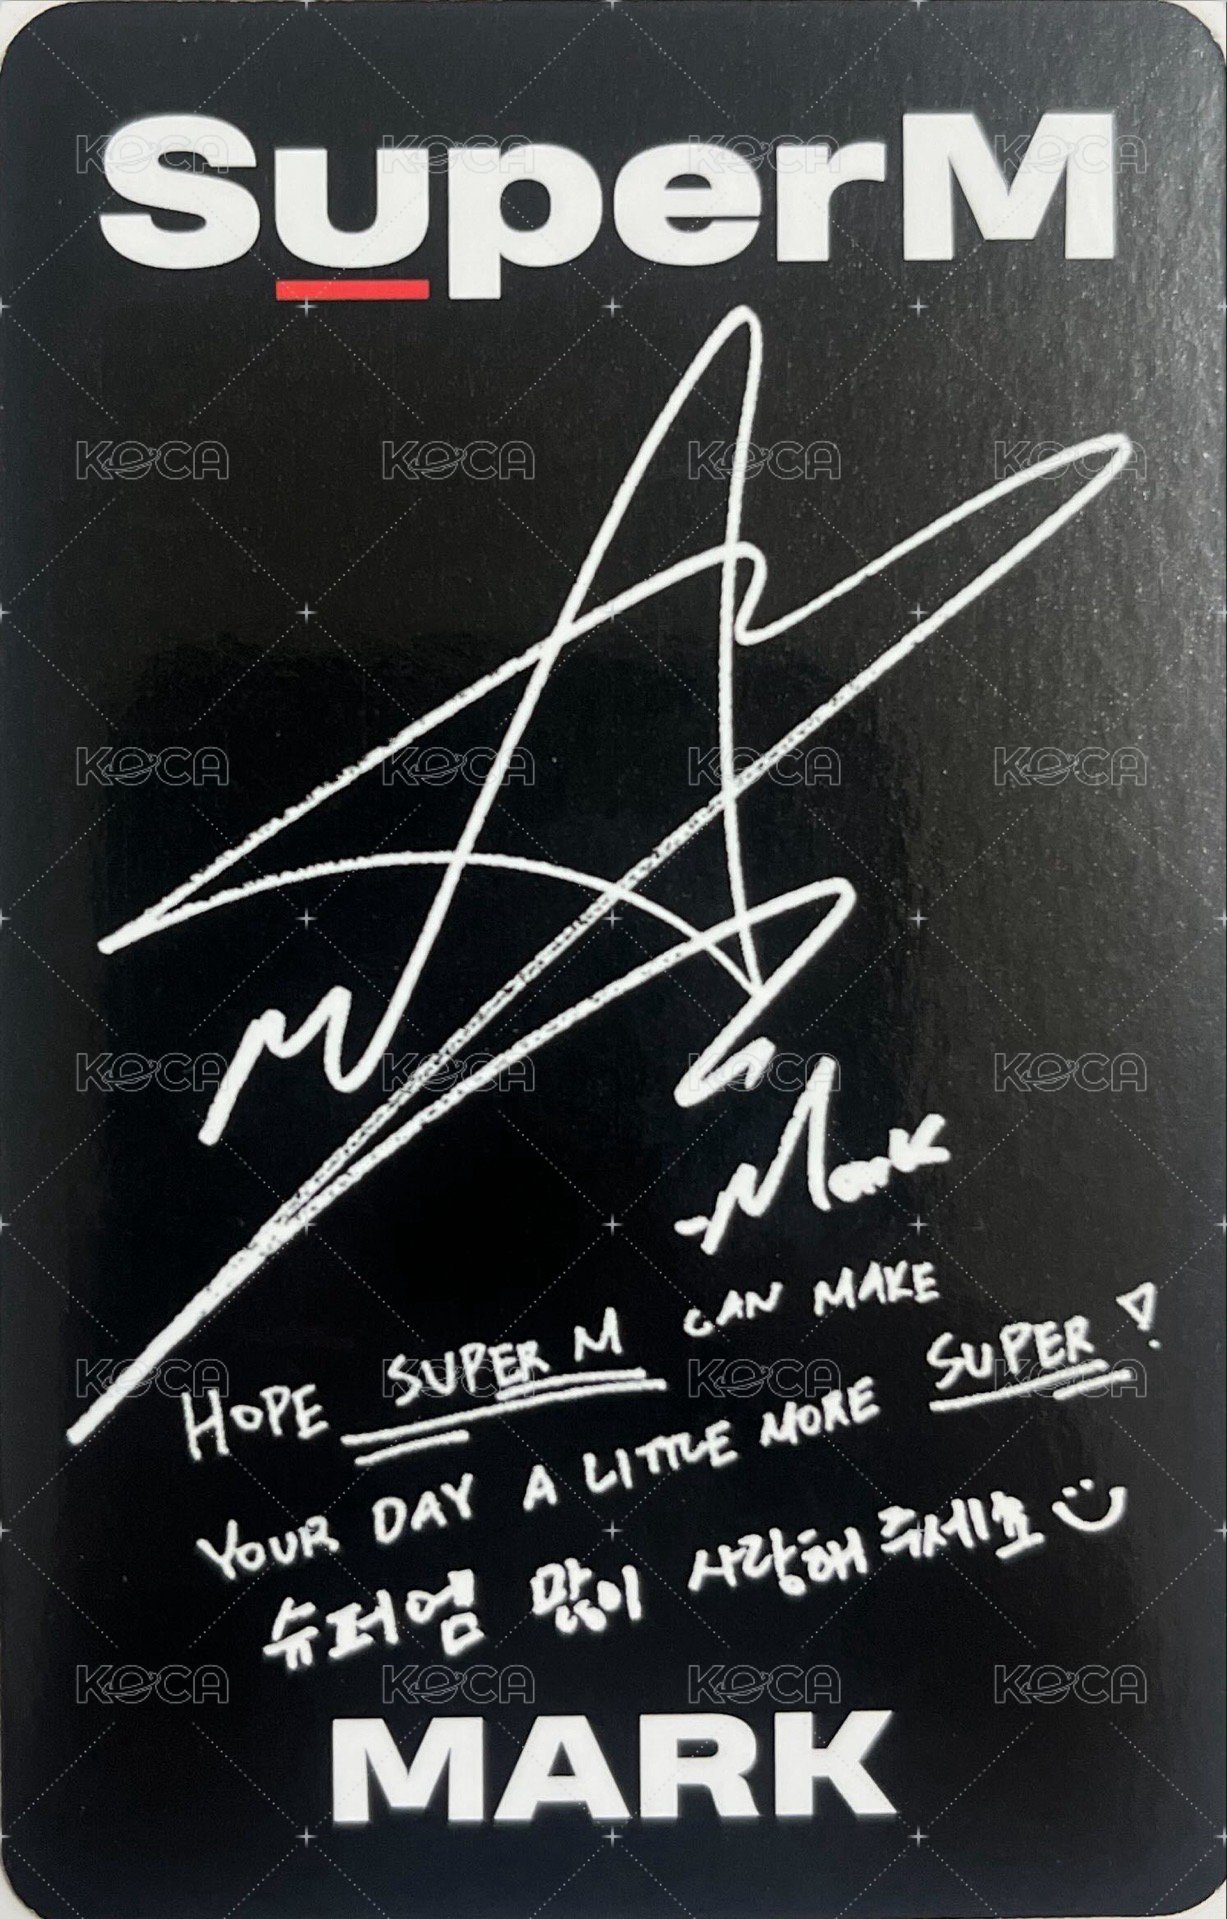 SuperM
-Mark
HOPE SUPER M CAN MAKE
YOUR DAY A LITTLE MORE SUPER!
슈퍼엠 많이 사랑해 주세요
MARK
KOCA KOCA KOCA KOCA
KOCA KOCA KOCA KOCA
KOCA KOCA KOCA KOCA
KOCA KOCA KOCA KOCA
KOCA KOCA KOCA KOCA
KOCA KOCA KOCA KOCA